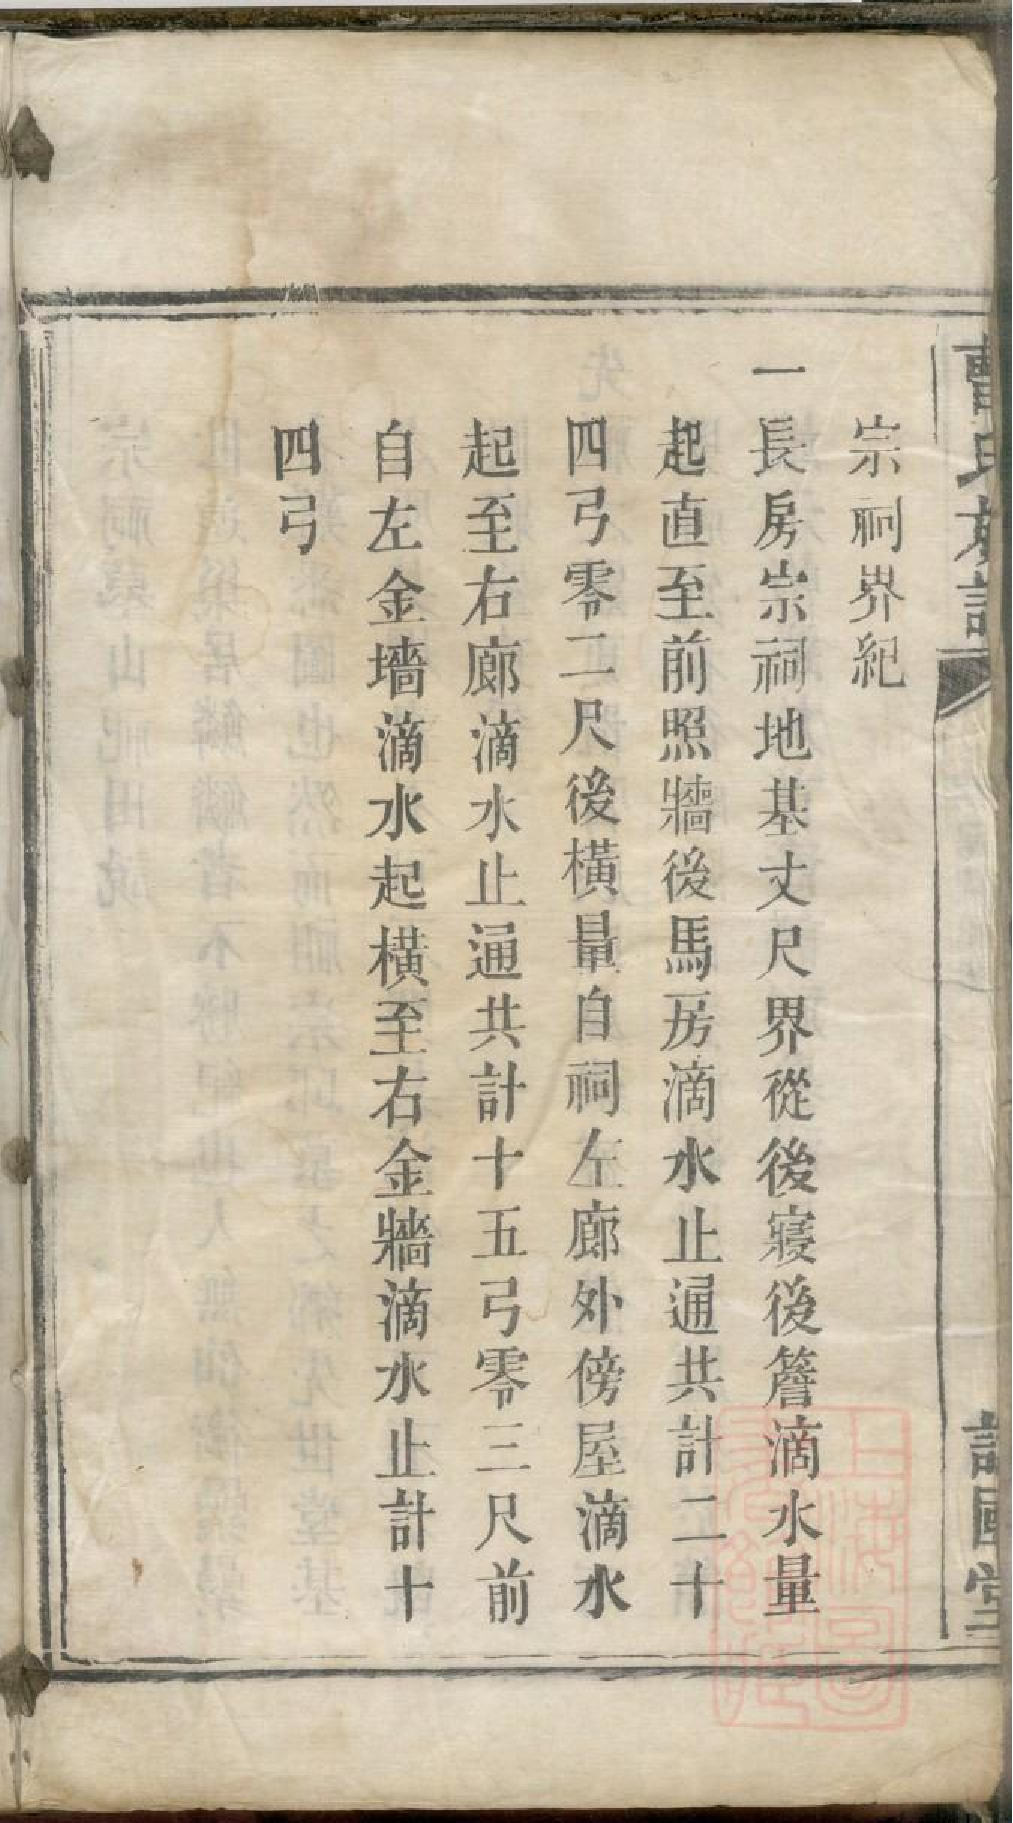 宗祠界紀
一長房宗祠地基丈尺界從後寢後簷滴水量
起直至前照牆後馬房滴水止通共計二十
四弓零二尺後橫量自祠左廊外傍屋滴水
起至右廊滴水止通共計十五弓零三尺前
自左金墻滴水起橫至右金牆滴水止計十
四弓